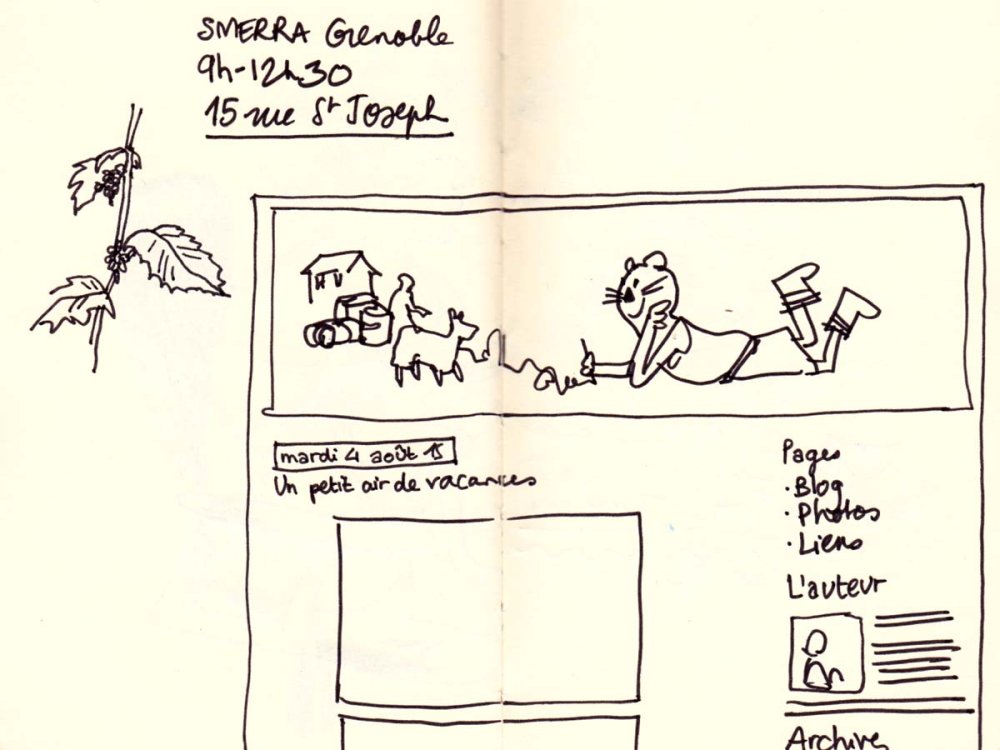 SMERRA Grenoble
9h-12h30
15 rue St Joseph
mardi 4 août 15
Un petit air de vacances
Pages
· Blog
· Photos
· Liens
L'auteur
Archives